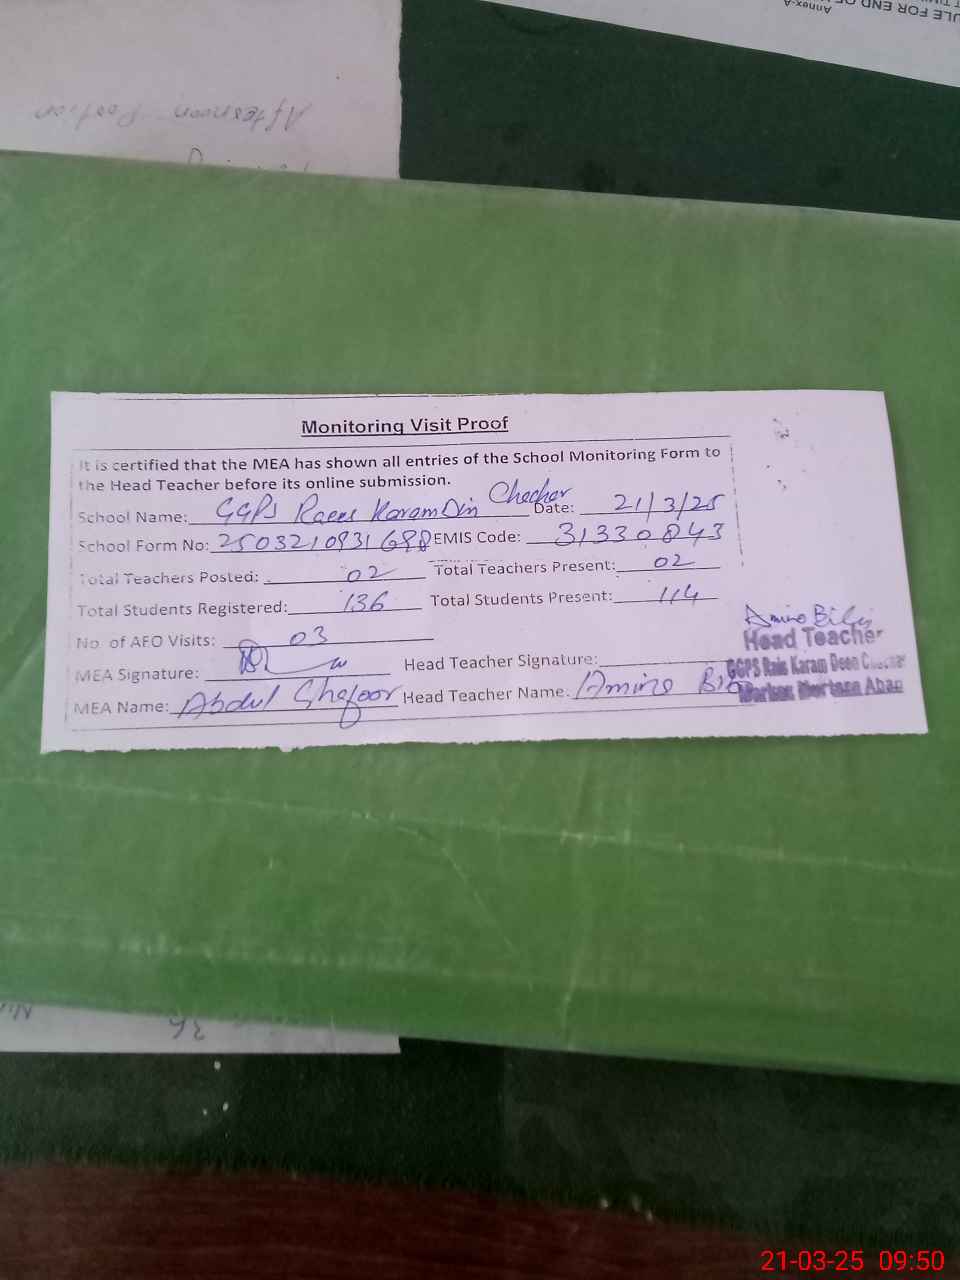 ULE FOR END OF
Annex-A
Afternoon Position
Monitoring Visit Proof
It is certified that the MEA has shown all entries of the School Monitoring Form to
the Head Teacher before its online submission.
School Name: GGPS Raees Karam Din Chachar Date: 21/3/25
School Form No: 2503210931698 EMIS Code: 31330843
Total Teachers Posted: 02 Total Teachers Present: 02
Total Students Registered: 136 Total Students Present: 114
No. of AEO Visits: 03
MEA Signature: Head Teacher Signature:
MEA Name: Abdul Ghafoor Head Teacher Name: Amina Bibi
Amina Bibi
Head Teacher
GGPS Rais Karam Deen Chachar
Markaz Murtaza Abad
36
21-03-25 09:50